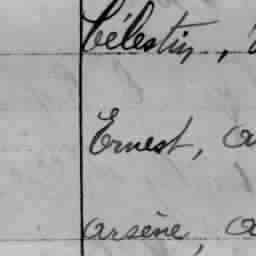 Célestin,
Ernest, a
arsène, a